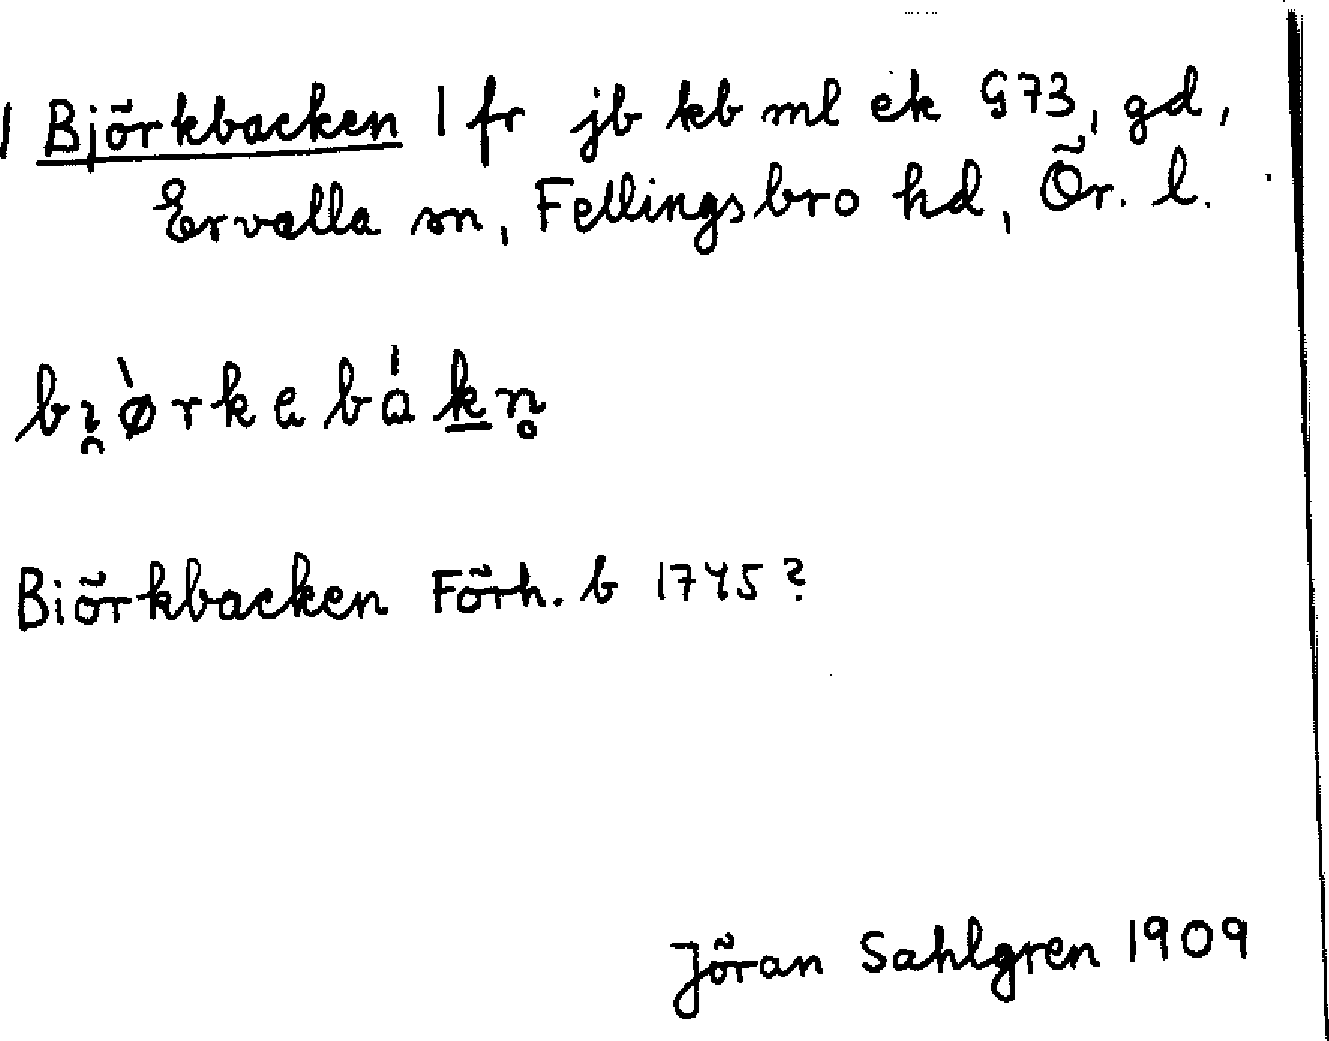 1 Björkbacken 1 fr jb kb ml ek G73, gd,
Ervalla sn, Fellingsbro hd, Ör. l.
bı̯ø̀rkebák̲n̥
Biörkbacken Förh. b 1745?
Jöran Sahlgren 1909